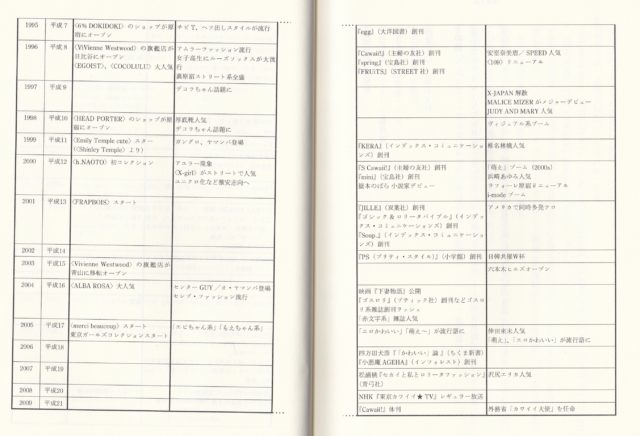 1995 平成7 〈6% DOKIDOKI〉のショップが原
宿にオープン
チビT、ヘソ出しスタイルが流行
1996 平成8 〈ViVienne Westwood〉の旗艦店が
日比谷にオープン
〈EGOIST〉、〈COCOLULU〉大人気
アムラーファッション流行
女子高生にルーズソックスが大流
行
裏原宿ストリート系全盛
1997 平成9
デコラちゃん話題に
1998 平成10 〈HEAD PORTER〉のショップが原
宿にオープン
厚底靴人気
デコラちゃん話題に
1999 平成11 〈Emily Temple cute〉スター
ト（〈Shirley Temple〉より）
ガングロ、ヤマンバ登場
2000 平成12 〈h.NAOTO〉初コレクション
アユラー現象
〈X-girl〉がストリートで人気
ユニクロ化など激安志向へ
2001 平成13 〈FRAPBOIS〉スタート
2002 平成14
2003 平成15 〈Vivienne Westwood〉の旗艦店が
青山に移転オープン
2004 平成16 〈ALBA ROSA〉大人気
センターGUY／ネ・ヤマンバ登場
セレブ・ファッション流行
2005 平成17 〈merci beaucoup〉スタート
東京ガールズコレクションスタート
「エビちゃん系」「もえちゃん系」
2006 平成18
2007 平成19
2008 平成20
2009 平成21
『egg』（大洋図書）創刊
『Cawaii!』（主婦の友社）創刊
『spring』（宝島社）創刊
『FRUiTS』（STREET社）創刊
安室奈美恵／SPEED人気
〈109〉リニューアル
X-JAPAN 解散
MALICE MIZER がメジャーデビュー
JUDY AND MARY 人気
ヴィジュアル系ブーム
『KERA』（インデックス・コミュニケーショ
ンズ）創刊
椎名林檎人気
『S Cawaii!』（主婦の友社）創刊
『mini』（宝島社）創刊
嶽本のばら 小説家デビュー
「萌え」ブーム（2000s）
浜崎あゆみ人気
ラフォーレ原宿リニューアル
i-mode ブーム
『JILLE』（双葉社）創刊
『ゴシック＆ロリータバイブル』（インデッ
クス・コミュニケーションズ）創刊
『Soup.』（インデックス・コミュニケーショ
ンズ）創刊
アメリカで同時多発テロ
『PS（プリティ・スタイル）』（小学館）創刊
日韓共催W杯
六本木ヒルズオープン
映画『下妻物語』公開
『ゴスロリ』（ブティック社）創刊などゴスロ
リ系雑誌創刊ラッシュ
「赤文字系」雑誌人気
「エロかわいい」「萌え〜」が流行語に
倖田來未人気
「萌え」、「エロかわいい」が流行語に
四方田犬彦『「かわいい」論』（ちくま新書）
『小悪魔 AGEHA』（インフォレスト）創刊
松浦桃『セカイと私とロリータファッション』
（青弓社）
沢尻エリカ人気
NHK『東京カワイイ★TV』レギュラー放送
『Cawaii!』休刊
外務省「カワイイ大使」を任命